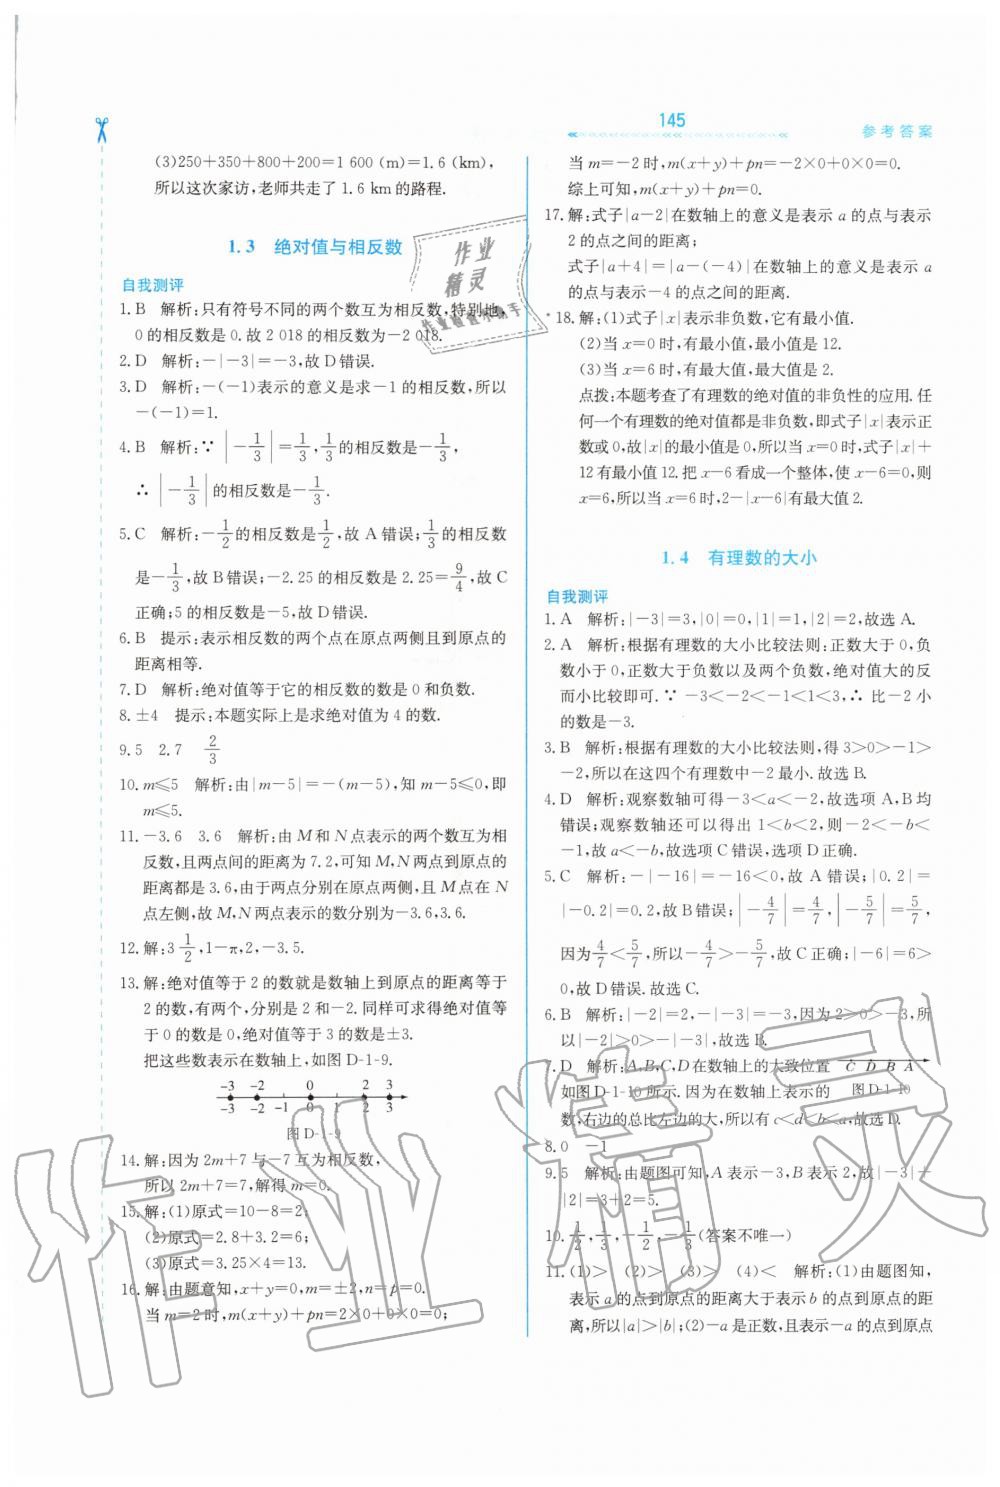 145
参考答案
(3)250+350+800+200=1 600 (m)=1.6 (km),
所以这次家访,老师共走了 1.6 km的路程.
1.3 绝对值与相反数
自我测评
1.B 解析:只有符号不同的两个数互为相反数,特别地,
0的相反数是0.故2 018的相反数为-2 018.
2.D 解析:-|-3|=-3,故D错误.
3.D 解析:-(-1)表示的意义是求-1的相反数,所以
-(-1)=1.
4.B 解析:∵|-1/3|=1/3,1/3的相反数是-1/3,
∴|-1/3|的相反数是-1/3.
5.C 解析:-1/2的相反数是1/2,故A错误;1/3的相反数
是-1/3,故B错误;-2.25的相反数是2.25=9/4,故C
正确;5的相反数是-5,故D错误.
6.B 提示:表示相反数的两个点在原点两侧且到原点的
距离相等.
7.D 解析:绝对值等于它的相反数的数是0和负数.
8.±4 提示:本题实际上是求绝对值为4的数.
9.5 2.7 2/3
10.m≤5 解析:由|m-5|=-(m-5),知m-5≤0,即
m≤5.
11.-3.6 3.6 解析:由M和N点表示的两个数互为相
反数,且两点间的距离为7.2,可知M,N两点到原点的
距离都是3.6,由于两点分别在原点两侧,且M点在N
点左侧,故M,N两点表示的数分别为-3.6,3.6.
12.解:3 1/2,1-π,2,-3.5.
13.解:绝对值等于2的数就是数轴上到原点的距离等于
2的数,有两个,分别是2和-2.同样可求得绝对值等
于0的数是0,绝对值等于3的数是±3.
把这些数表示在数轴上,如图D-1-9.
-3 -2 0 2 3
-3 -2 -1 0 1 2 3
图D-1-9
14.解:因为2m+7与-7互为相反数,
所以2m+7=7,解得m=0.
15.解:(1)原式=10-8=2;
(2)原式=2.8+3.2=6;
(3)原式=3.25×4=13.
16.解:由题意知,x+y=0,m=±2,n=0.
当m=2时,m(x+y)+pn=2×0+0×0=0;
当m=-2时,m(x+y)+pn=-2×0+0×0=0.
综上可知,m(x+y)+pn=0.
17.解:式子|a-2|在数轴上的意义是表示a的点与表示
2的点之间的距离;
式子|a+4|=|a-(-4)|在数轴上的意义是表示a
的点与表示-4的点之间的距离.
*18.解:(1)式子|x|表示非负数,它有最小值.
(2)当x=0时,有最小值,最小值是12.
(3)当x=6时,有最大值,最大值是2.
点拨:本题考查了有理数的绝对值的非负性的应用.任
何一个有理数的绝对值都是非负数,即式子|x|表示正
数或0,故|x|的最小值是0,所以当x=0时,式子|x|+
12有最小值12.把x-6看成一个整体,使x-6=0,则
x=6,所以当x=6时,2-|x-6|有最大值2.
1.4 有理数的大小
自我测评
1.A 解析:|-3|=3,|0|=0,|1|=1,|2|=2,故选A.
2.A 解析:根据有理数的大小比较法则:正数大于0,负
数小于0,正数大于负数以及两个负数,绝对值大的反
而小比较即可.∵-3<-2<-1<1<3,∴比-2小
的数是-3.
3.B 解析:根据有理数的大小比较法则,得3>0>-1>
-2,所以在这四个有理数中-2最小.故选B.
4.D 解析:观察数轴可得-3<a<-2,故选项A,B均
错误;观察数轴还可以得出1<b<2,则-2<-b<
-1,故a<-b,故选项C错误,选项D正确.
5.C 解析:-|-16|=-16<0,故A错误;|0.2|=
|-0.2|=0.2,故B错误;|-4/7|=4/7,|-5/7|=5/7,
因为4/7<5/7,所以-4/7>-5/7,故C正确;|-6|=6>
0,故D错误.故选C.
6.B 解析:|-2|=2,-|-3|=-3,因为2>0>-3,所
以|-2|>0>-|-3|,故选B.
7.D 解析:A,B,C,D在数轴上的大致位置 C D B A
如图D-1-10所示.因为在数轴上表示的 图D-1-10
数,右边的总比左边的大,所以有c<d<b<a,故选D.
8.0 -1
9.5 解析:由题图可知,A表示-3,B表示2,故|-3|+
|2|=3+2=5.
10.1/2,1/3,-1/2,-1/3(答案不唯一)
11.(1)> (2)> (3)> (4)< 解析:(1)由题图知,
表示a的点到原点的距离大于表示b的点到原点的距
离,所以|a|>|b|;(2)-a是正数,且表示-a的点到原点
作业
精灵
作业精灵